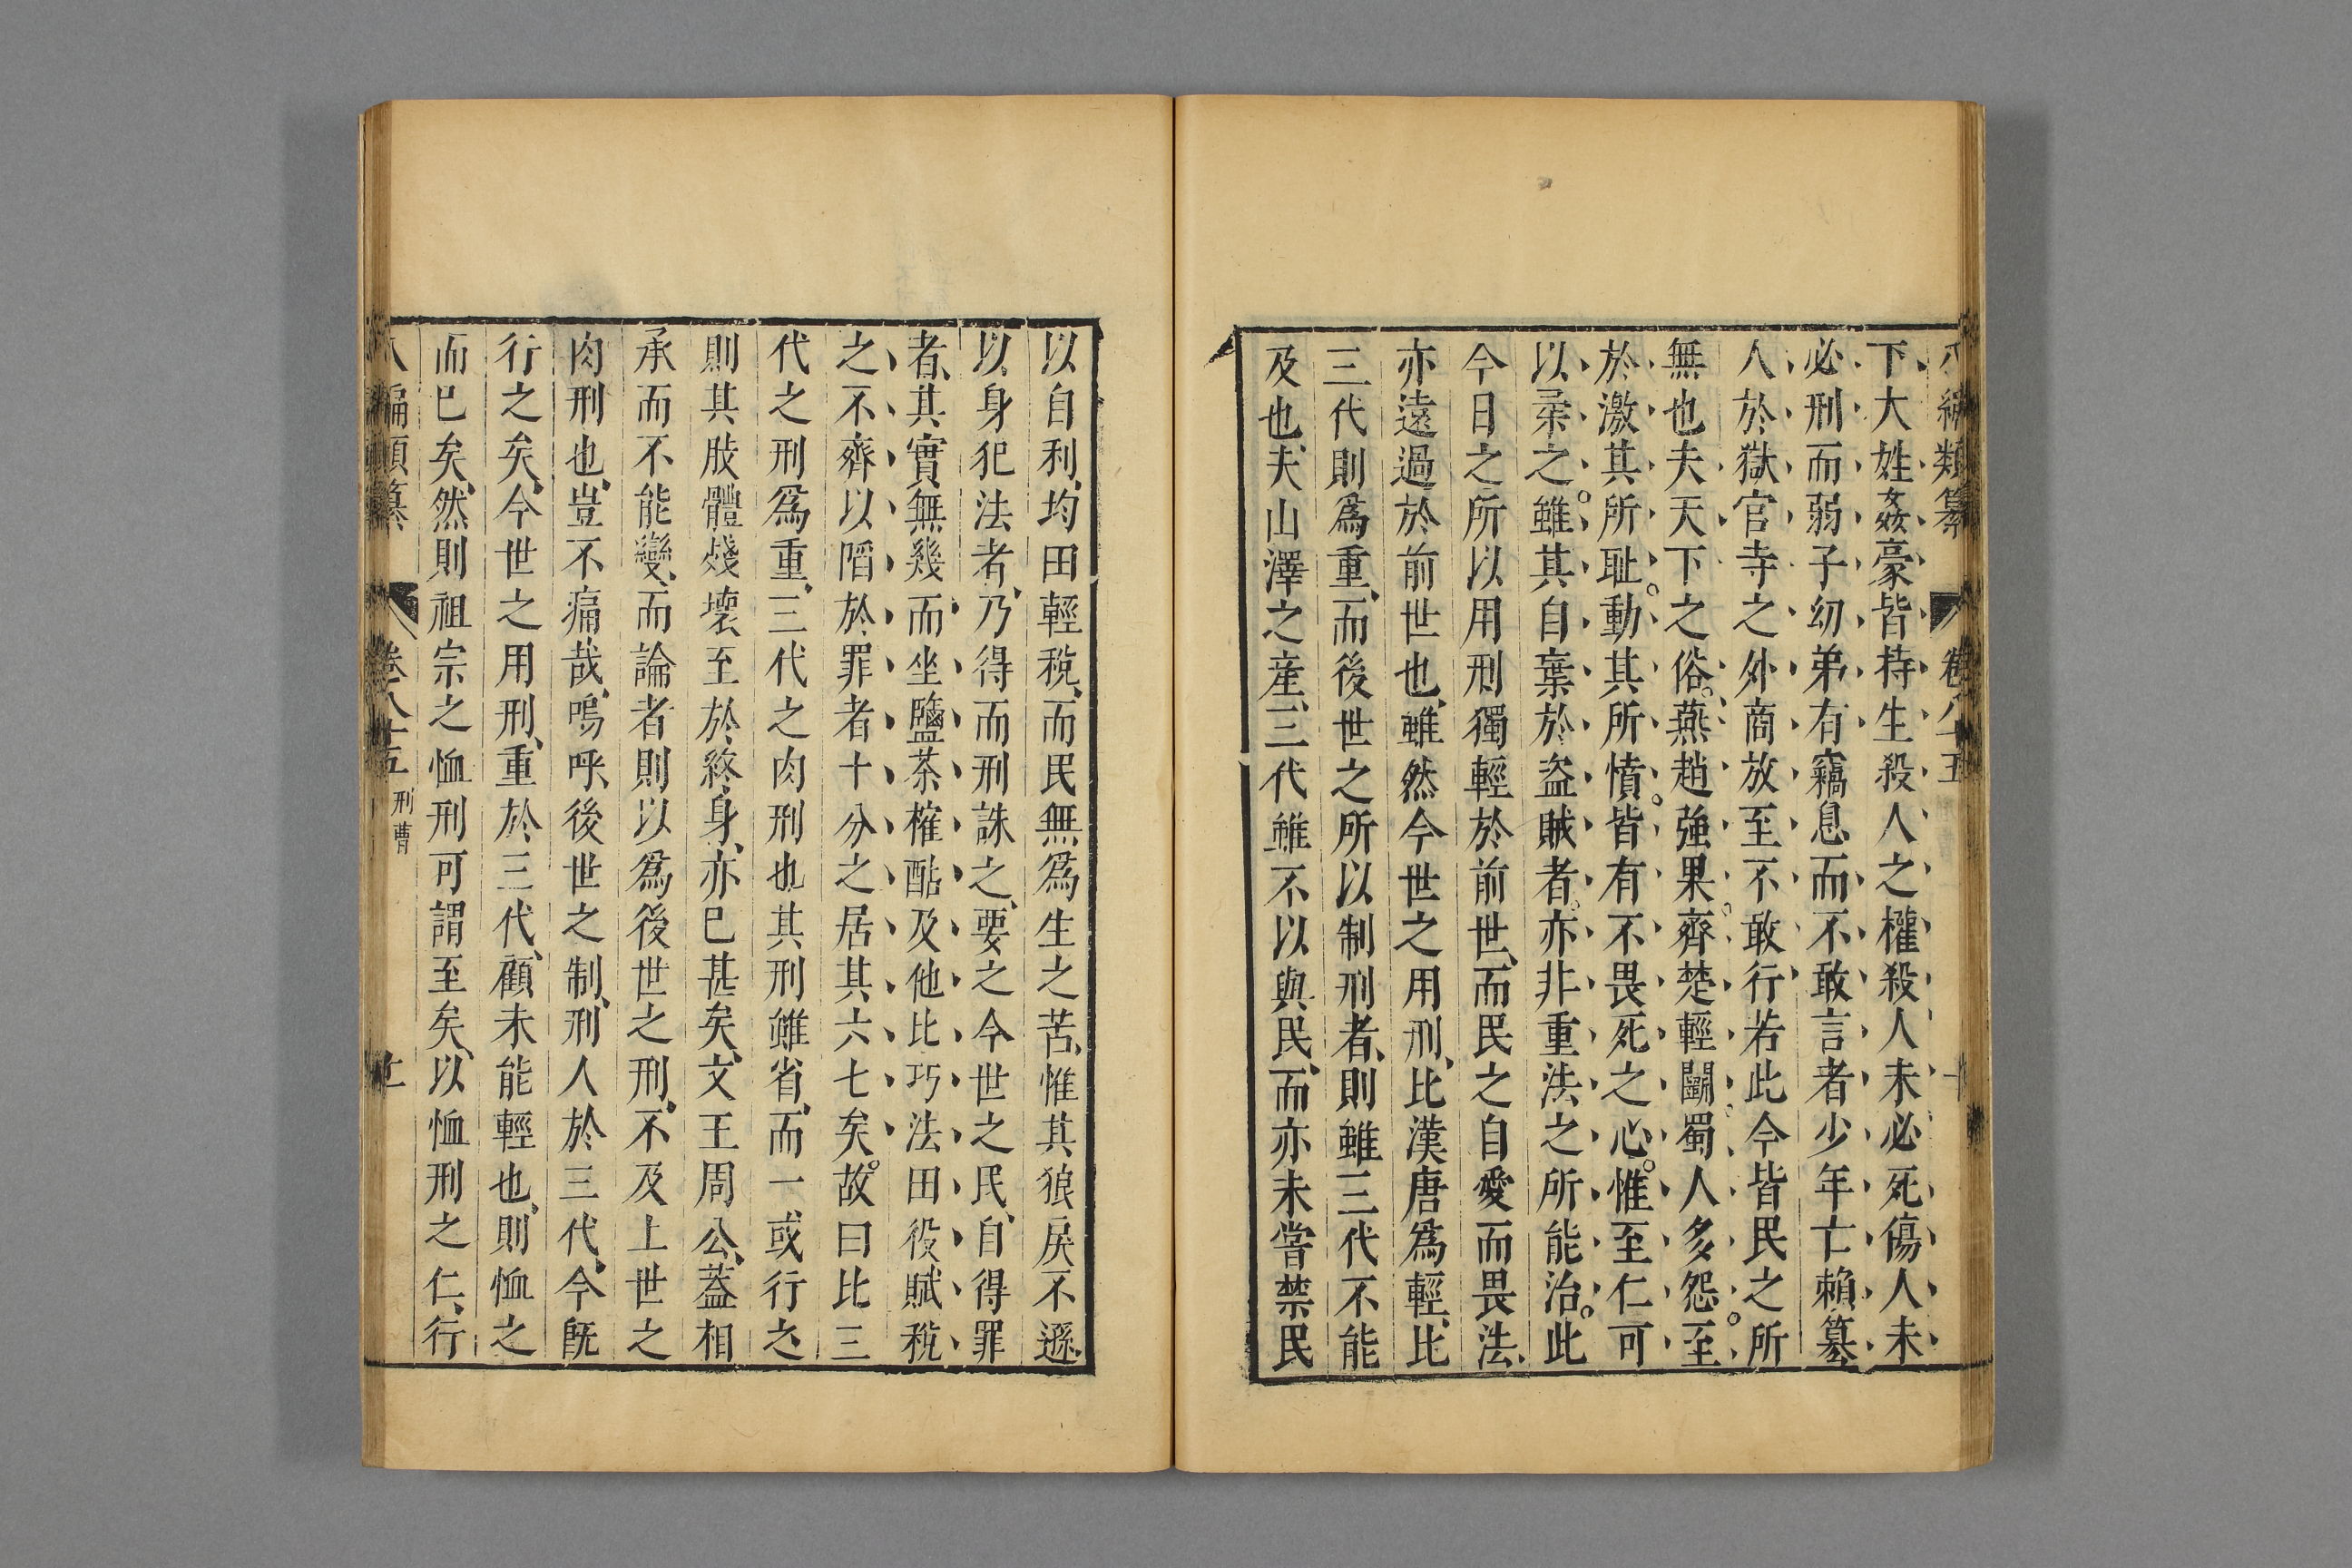 八編類纂 卷八十五 十
下大姓姦豪皆持生殺人之權殺人未必死傷人未
必刑而弱子幼弟有竊息而不敢言者少年亡賴篡
人於獄官寺之外商放至不敢行若此今皆民之所
無也夫天下之俗。燕趙強果。齊楚輕鬭蜀人多怨。至
於激其所耻。動其所憤。皆有不畏死之心。惟至仁可
以柔之。雖其自棄於盗賊者。亦非重法之所能治。此
今日之所以用刑獨輕於前世、而民之自愛而畏法、
亦遠過於前世也、雖然今世之用刑、比漢唐爲輕、比
三代則爲重、而後世之所以制刑者、則雖三代不能
及也、夫山澤之產、三代雖不以與民、而亦未嘗禁民
以自利、均田輕稅、而民無爲生之苦、惟其狼戾不遜、
以身犯法者、乃得而刑誅之、要之今世之民、自得罪
者、其實無幾、而坐鹽茶榷酤及他比巧法田役賦稅
之不齊以陷於罪者十分之居其六七矣。故曰比三
代之刑爲重、三代之肉刑也其刑雖省、而一或行之
則其肢體殘壞、至於終身、亦巳甚矣、文王周公、蓋相
承而不能變、而論者則以爲後世之刑、不及上世之
肉刑也、豈不痛哉、嗚呼、後世之制、刑人於三代、今旣
行之矣、今世之用刑、重於三代、顧未能輕也、則恤之
而巳矣、然則祖宗之恤刑可謂至矣、以恤刑之仁、行
八編類纂 卷八十五 刑曹